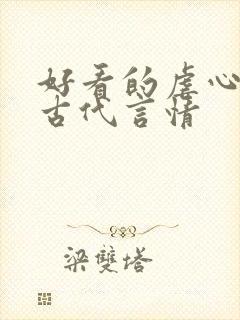 好看的虐心
古代言情
梁雙塔